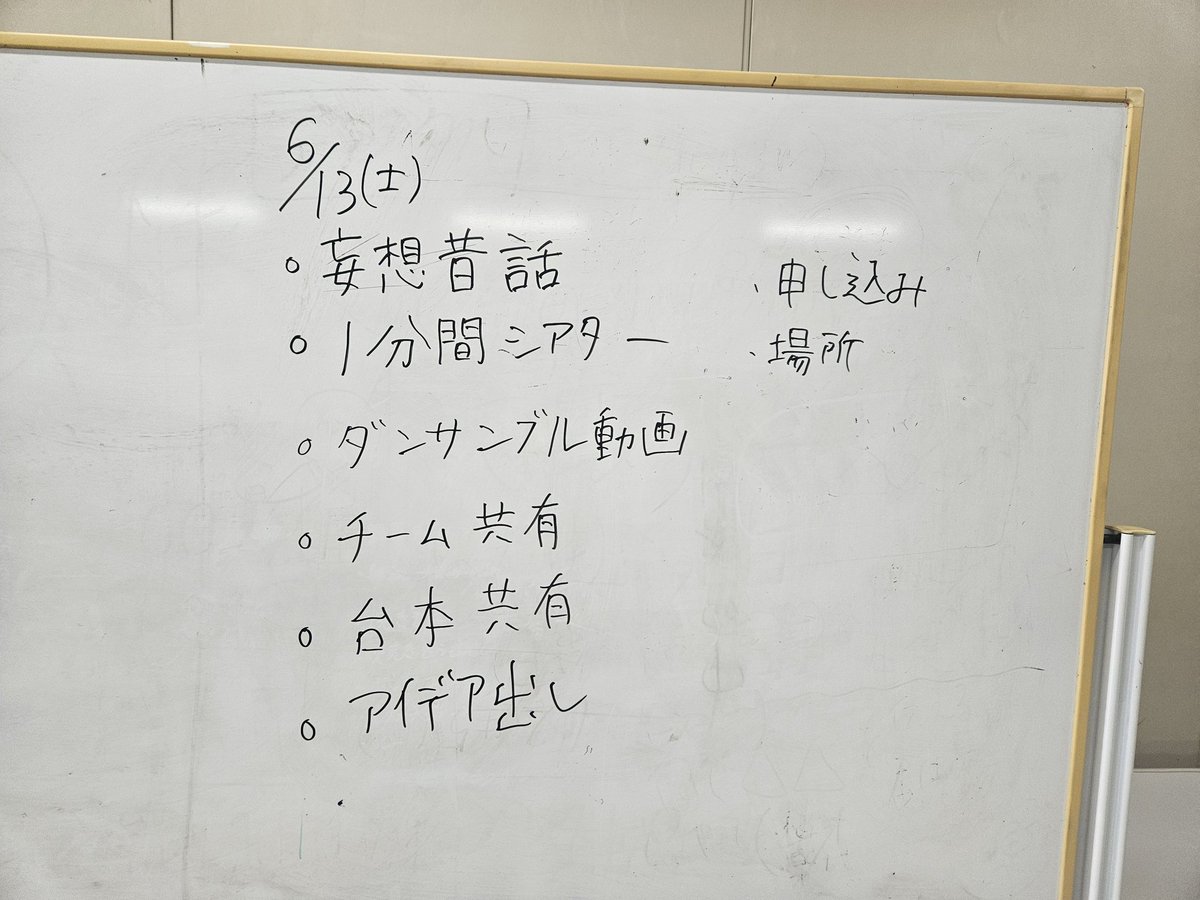 6/13(土)
○ 妄想昔話
○ 1分間シアター
○ ダンサンブル動画
○ チーム共有
○ 台本共有
○ アイデア出し
・申し込み
・場所